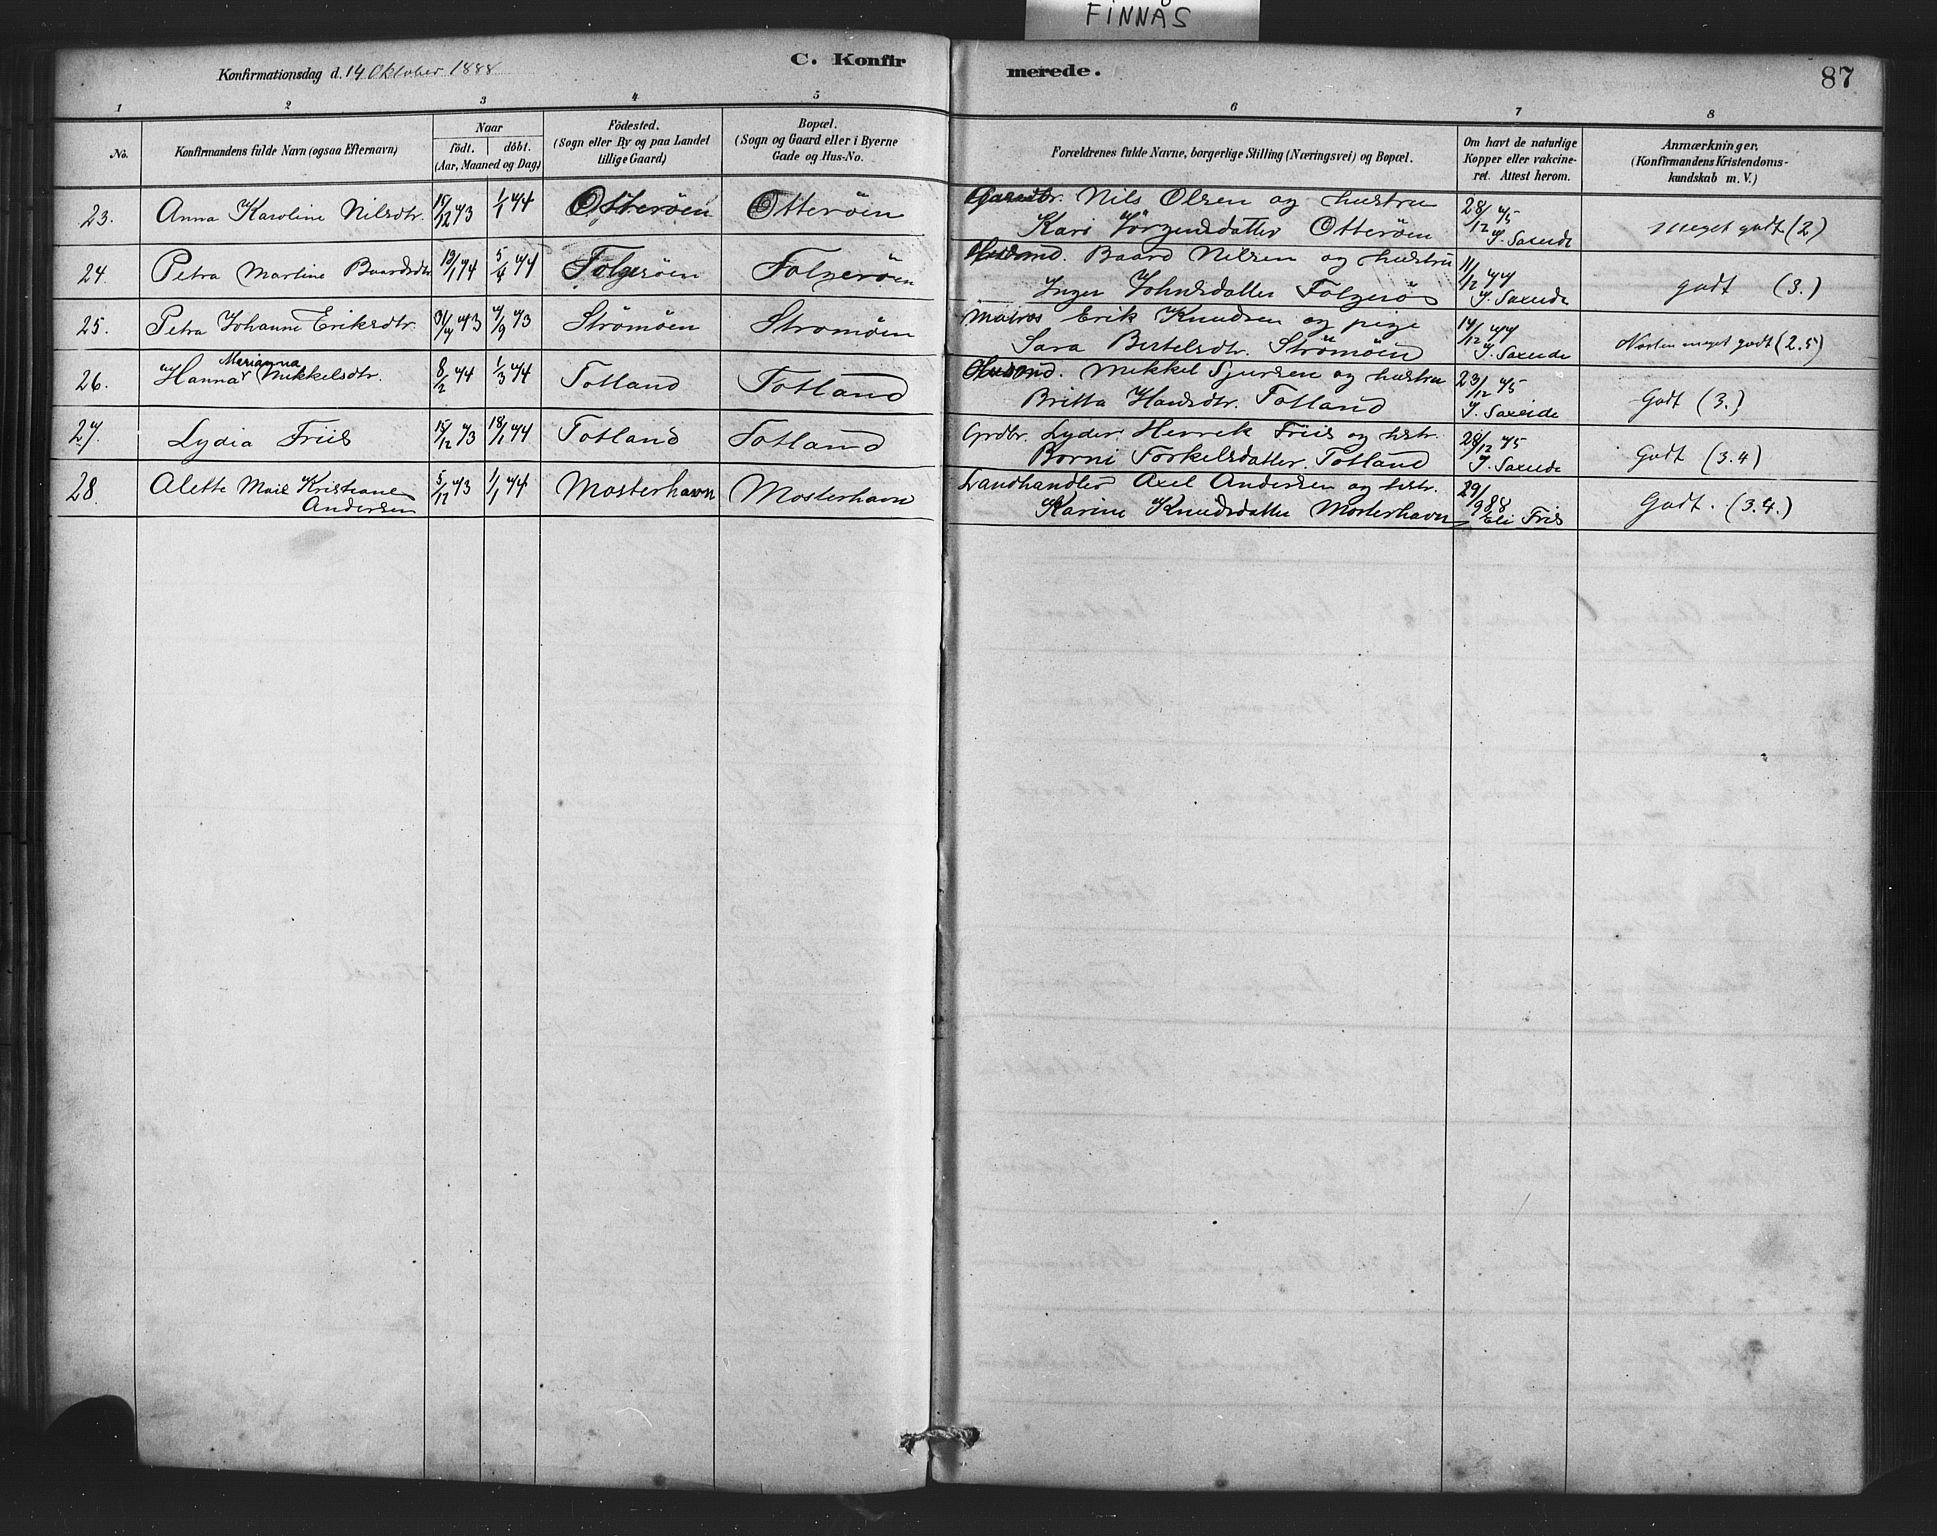 FINNÅS
Konfirmationsdag d. 14 Oktober 1888
C. Konfirmerede.
87
1 2 3 4 5 6 7 8
No.
Konfirmandens fulde Navn (ogsaa Efternavn)
Naar
födt. döbt.
(Aar, Maaned og Dag)
Födested.
(Sogn eller By og paa Landet
tillige Gaard)
Bopæl.
(Sogn og Gaard eller i Byerne
Gade og Hus-No.
Forældrenes fulde Navne, borgerlige Stilling (Næringsvei) og Bopæl.
Om havt de naturlige
Kopper eller vakcine-
ret. Attest herom.
Anmærkninger.
(Konfirmandens Kristendoms-
kundskab m. V.)
23. Anna Karoline Nilsdtr. 15/12 73 1/1 74 Otteröen Otteröen Gaardbr. Nils Olsen og hustru
Kari Jörgensdatter Otteröen 28/12 75 meget godt (2)
24. Petra Martine Baardsdtr 13/1 74 5/4 74 Folgeröen Folgeröen Husmd. Baard Nilsen og hustru
Inger Johnsdatter Folgerö 11/12 77 godt (3.)
25. Petra Johanne Eriksdtr. 73 7/9 73 Strömöen Stromöen Matros Erik Knudsen og pige
Sara Bertelsdtr. Strömöen 14/12 77 Næsten meget godt (2.5)
26. Hanna Marianna Mikkelsdtr. 8/2 74 1/3 74 Totland Totland Husmd. Mikkel Sjursen og hustru
Britta Hansdtr. Totland 23/12 75 Godt (3.)
27. Lydia Friis 15/12 73 18/1 74 Totland Totland Grdbr. Lyder Henrik Friis og hstr.
Borni Torkelsdatter Totland 28/12 75 Godt (3.4)
28. Alette Marie Kristiane
Andersen 5/12 73 1/1 74 Mosterhavn Mosterhavn Landhandler Axel Andersen og hstr.
Karine Knudsdatter Mosterhavn 29/9 88 Eli Friis Godt. (3.4.)